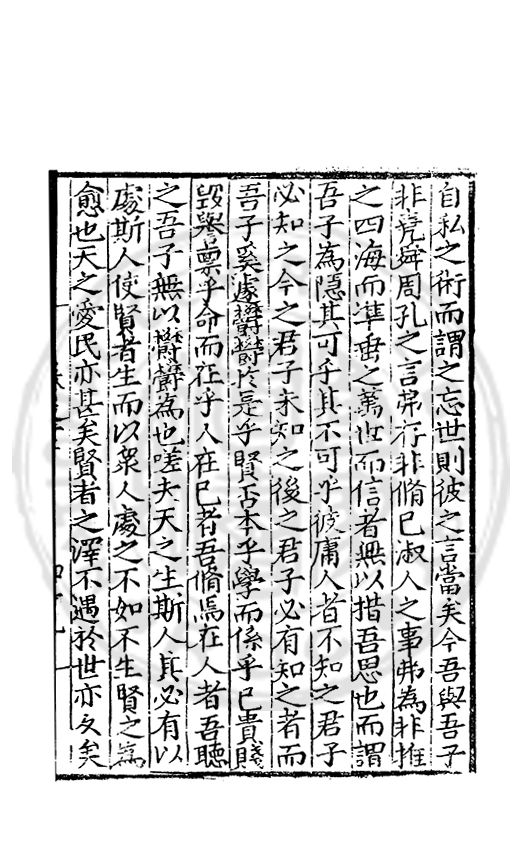 自私之術而謂之忘世則彼之言當矣今吾與吾子
非堯舜周孔之言弗行非脩已淑人之事弗為非推
之四海而準垂之萬世而信者無以措吾思也而謂
吾子為隱其可乎其不可乎彼庸人者不知之君子
必知之今之君子未知之後之君子必有知之者而
吾子奚遽欝欝於是乎賢否本乎學而係乎已貴賤
毀譽禀乎命而在乎人在已者吾脩焉在人者吾聽
之吾子無以欝欝為也嗟夫天之生斯人其必有以
處斯人使賢者生而以衆人處之不如不生賢之為
愈也天之愛民亦甚矣賢者之澤不遇於世亦久矣